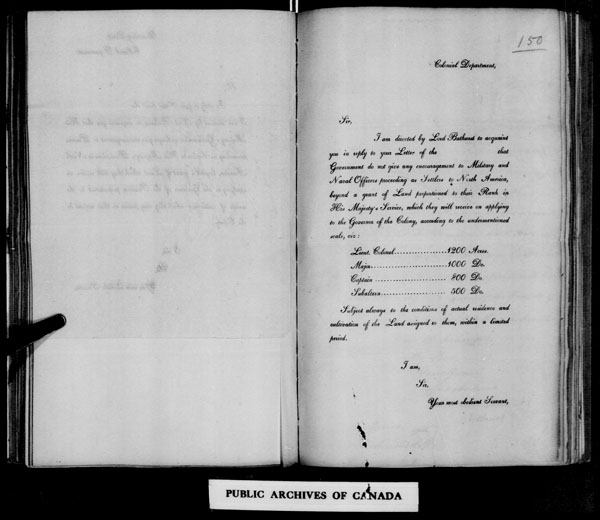 150
Colonial Department,
Sir,
I am directed by Lord Bathurst to acquaint
you in reply to your Letter of the that
Government do not give any encouragement to Military and
Naval Officers proceeding as Settlers to North America,
beyond a grant of Land proportioned to their Rank in
His Majesty's Service, which they will receive on applying
to the Governor of the Colony, according to the undermentioned
scale, viz:
Lieut. Colonel....................1200 Acres.
Major..........................1000 Do.
Captain........................ 800 Do.
Subaltern...................... 500 Do.
Subject always to the conditions of actual residence and
cultivation of the Land assigned to them, within a limited
period.
I am,
Sir,
Your most obedient Servant,
PUBLIC ARCHIVES OF CANADA